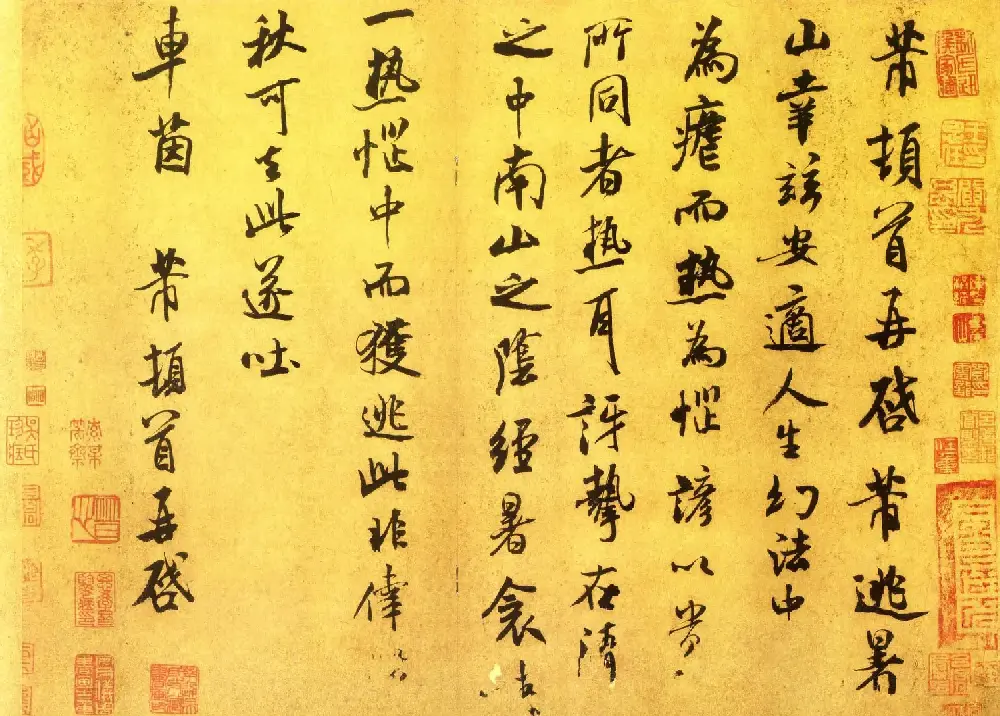 芾頓首再啓芾逃暑
山幸兹安適人生幻法中
為瘧而熱為惱諺以貴
所同者熱耳訝挈在清
之中南山之陰經暑衾
一熱惱中而獲逃此非倖
秋可去此遂吐
車茵 芾頓首再啓